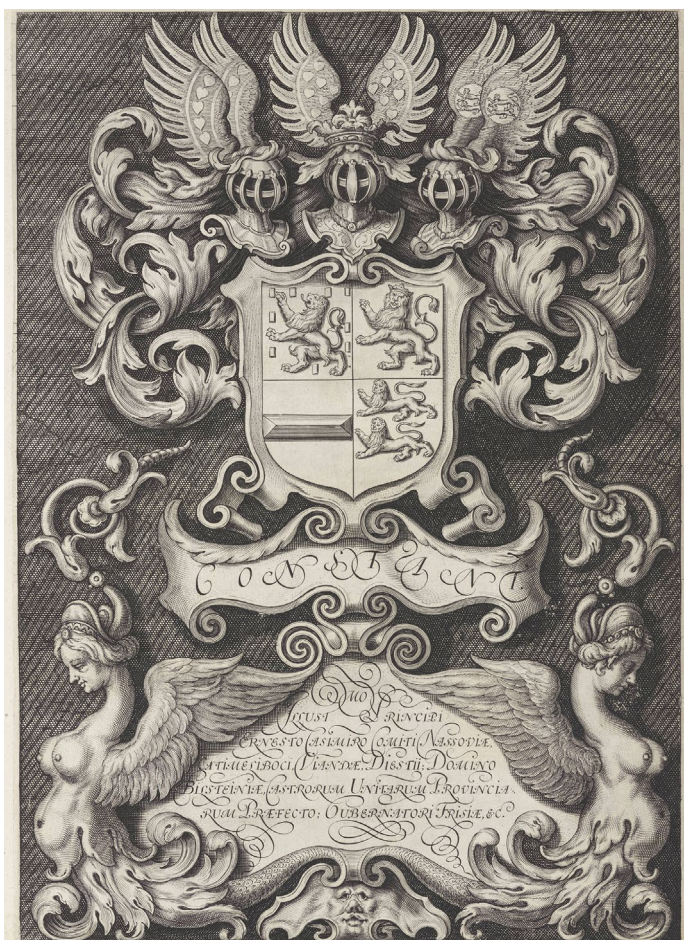 CONSTANT
Quo
Illust Principi
Ernesto Casimiro Comiti Nassoviæ,
Catimeliboci, Viandæ, Diestii: Domino
Bilsteiniæ, Castrorum Unitarum Provincia-
rum Præfecto: Gubernatori Frisiæ, &c.